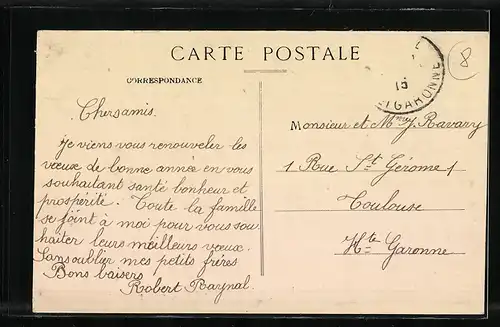 CARTE POSTALE
CORRESPONDANCE
8
15
Chersamis.
Je viens vous renouveler les
vœuse de bonne année en vous
souhaitant santé bonheur et
prospérité. Toute la famille
se joint à moi pour vous sou
haiter leurs meilleurs vœux.
Sans oublier mes petits frères
Bons baisers
Robert Raynal.
Monsieur et Mme J. Ravary
1 Rue St. Gérome 1
Toulouse
Hte Garonne